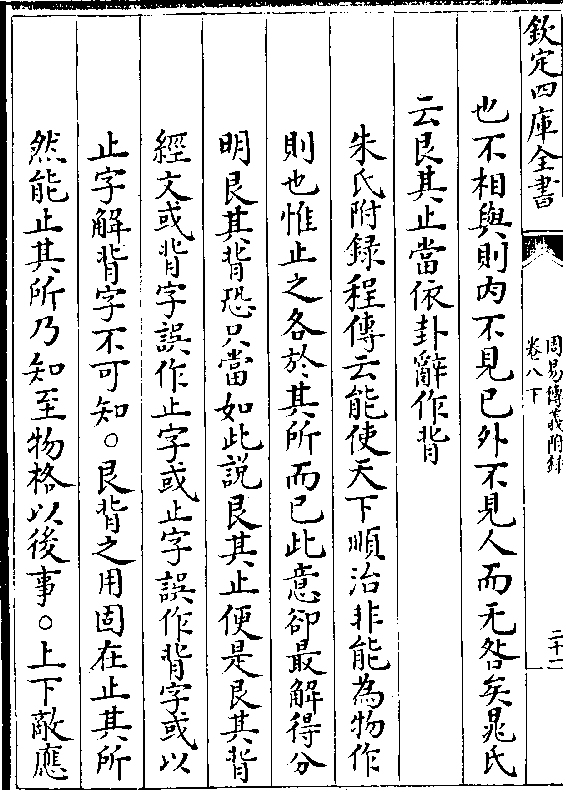 欽定四庫全書
周易傳義附録
卷八下
二十一
也不相與則内不見已外不見人而无咎矣晁氏
云艮其止當依卦辭作背
朱氏附録程傳云能使天下順治非能為物作
則也惟止之各於其所而已此意卻最解得分
明艮其背恐只當如此説艮其止便是艮其背
經文或背字誤作止字或止字誤作背字或以
止字解背字不可知○艮背之用固在止其所
然能止其所乃知至物格以後事○上下敵應